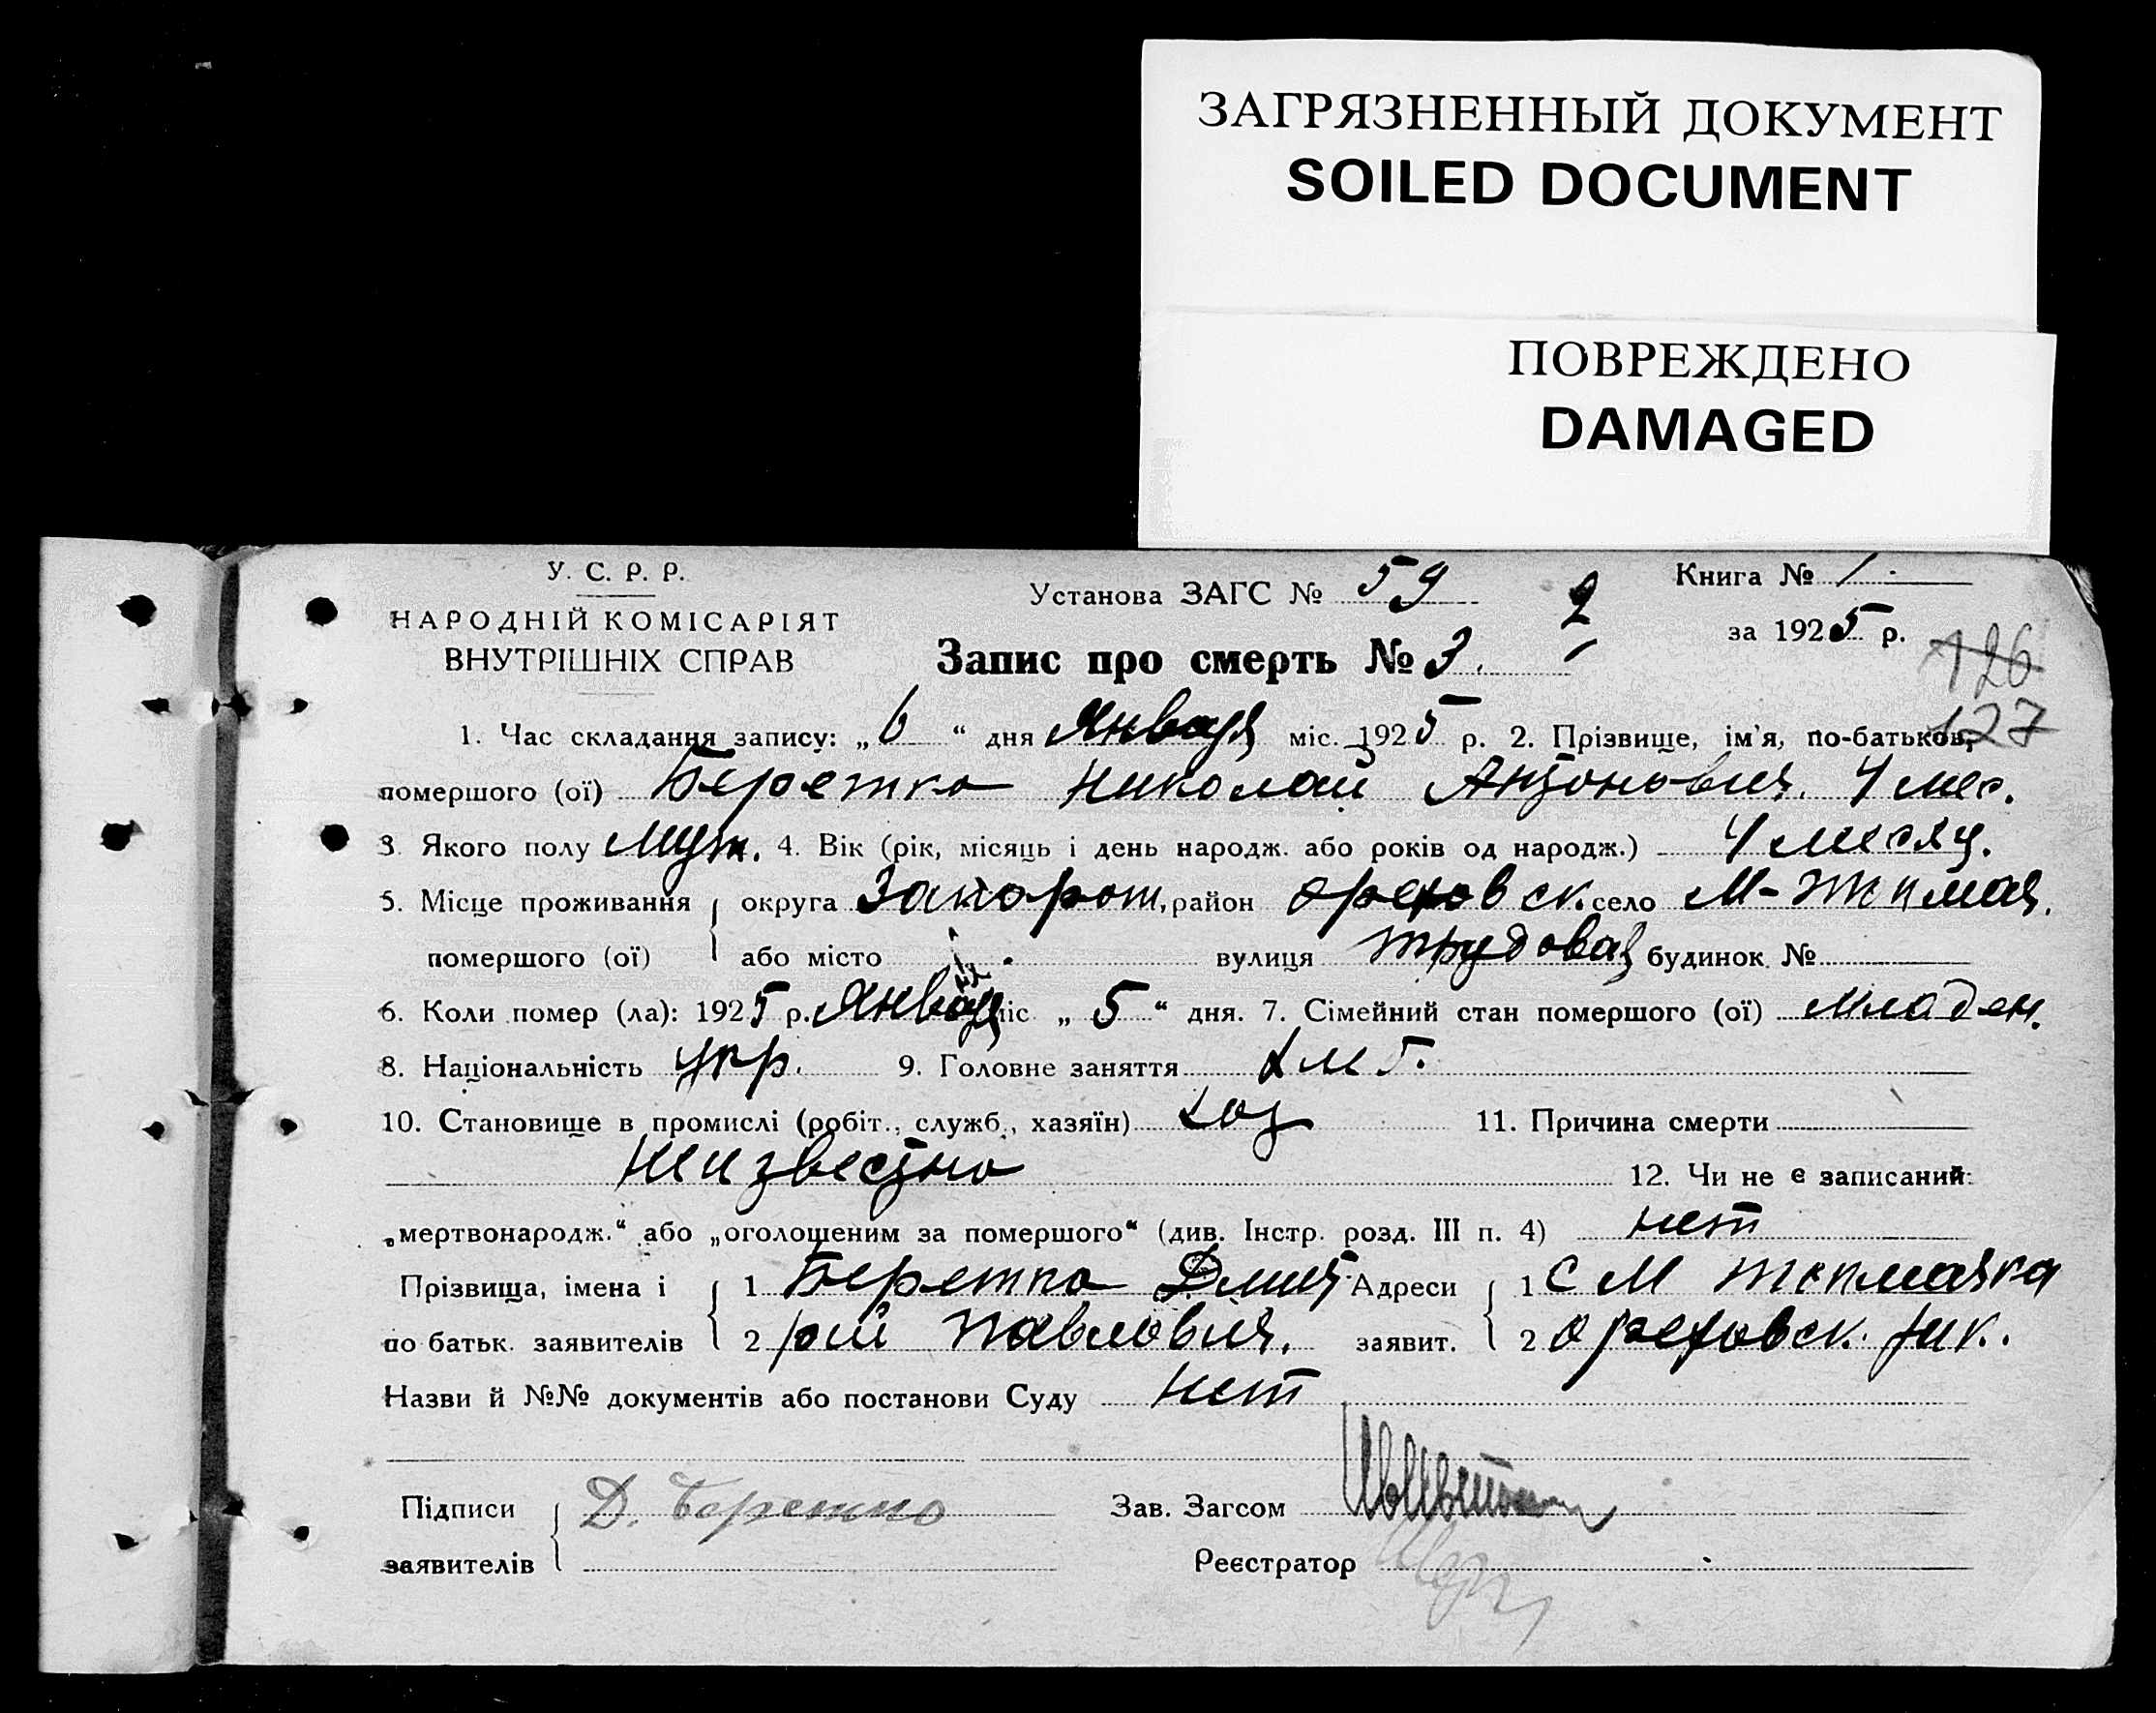 ЗАГРЯЗНЕННЫЙ ДОКУМЕНТ
SOILED DOCUMENT
ПОВРЕЖДЕНО
DAMAGED
У. С. Р. Р.
НАРОДНІЙ КОМІСАРІЯТ
ВНУТРІШНІХ СПРАВ
Установа ЗАГС № 59
2
Книга № 1
за 1925 р.
Запис про смерть № 3.
126
127
1. Час складання запису: „6“ дня Января міс. 1925 р. 2. Прізвище, ім'я, по-батькові,
помершого (ої) Беретко Николай Антонович. 4 мес.
3. Якого полу Муж. 4. Вік (рік, місяць і день народж. або років од народж.) 4 месяц.
5. Місце проживання округа Запорож, район Ореховск. село М-Токмач.
помершого (ої) або місто вулиця Трудовая будинок №
6. Коли помер (ла): 1925 р. Января міс „5“ дня. 7. Сімейний стан помершого (ої) младен.
8. Національність укр. 9. Головне заняття
10. Становище в промислі (робіт., служб., хазяїн) хоз 11. Причина смерти
Неизвестно 12. Чи не є записаний:
„мертвонародж.“ або „оголошеним за помершого“ (див. Інстр. розд. III п. 4) нет
Прізвища, імена і 1 Беретко Дмит Адреси 1 С М Токмачка
по батьк. заявителів 2 рий Павлович. заявит. 2 Ореховск. рик.
Назви й №№ документів або постанови Суду Нет
Підписи Д. Беретко Зав. Загсом
заявителів Реєстратор